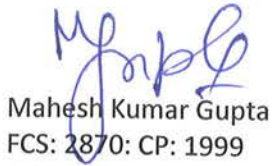 Mahesh Kumar Gupta
FCS: 2870: CP: 1999